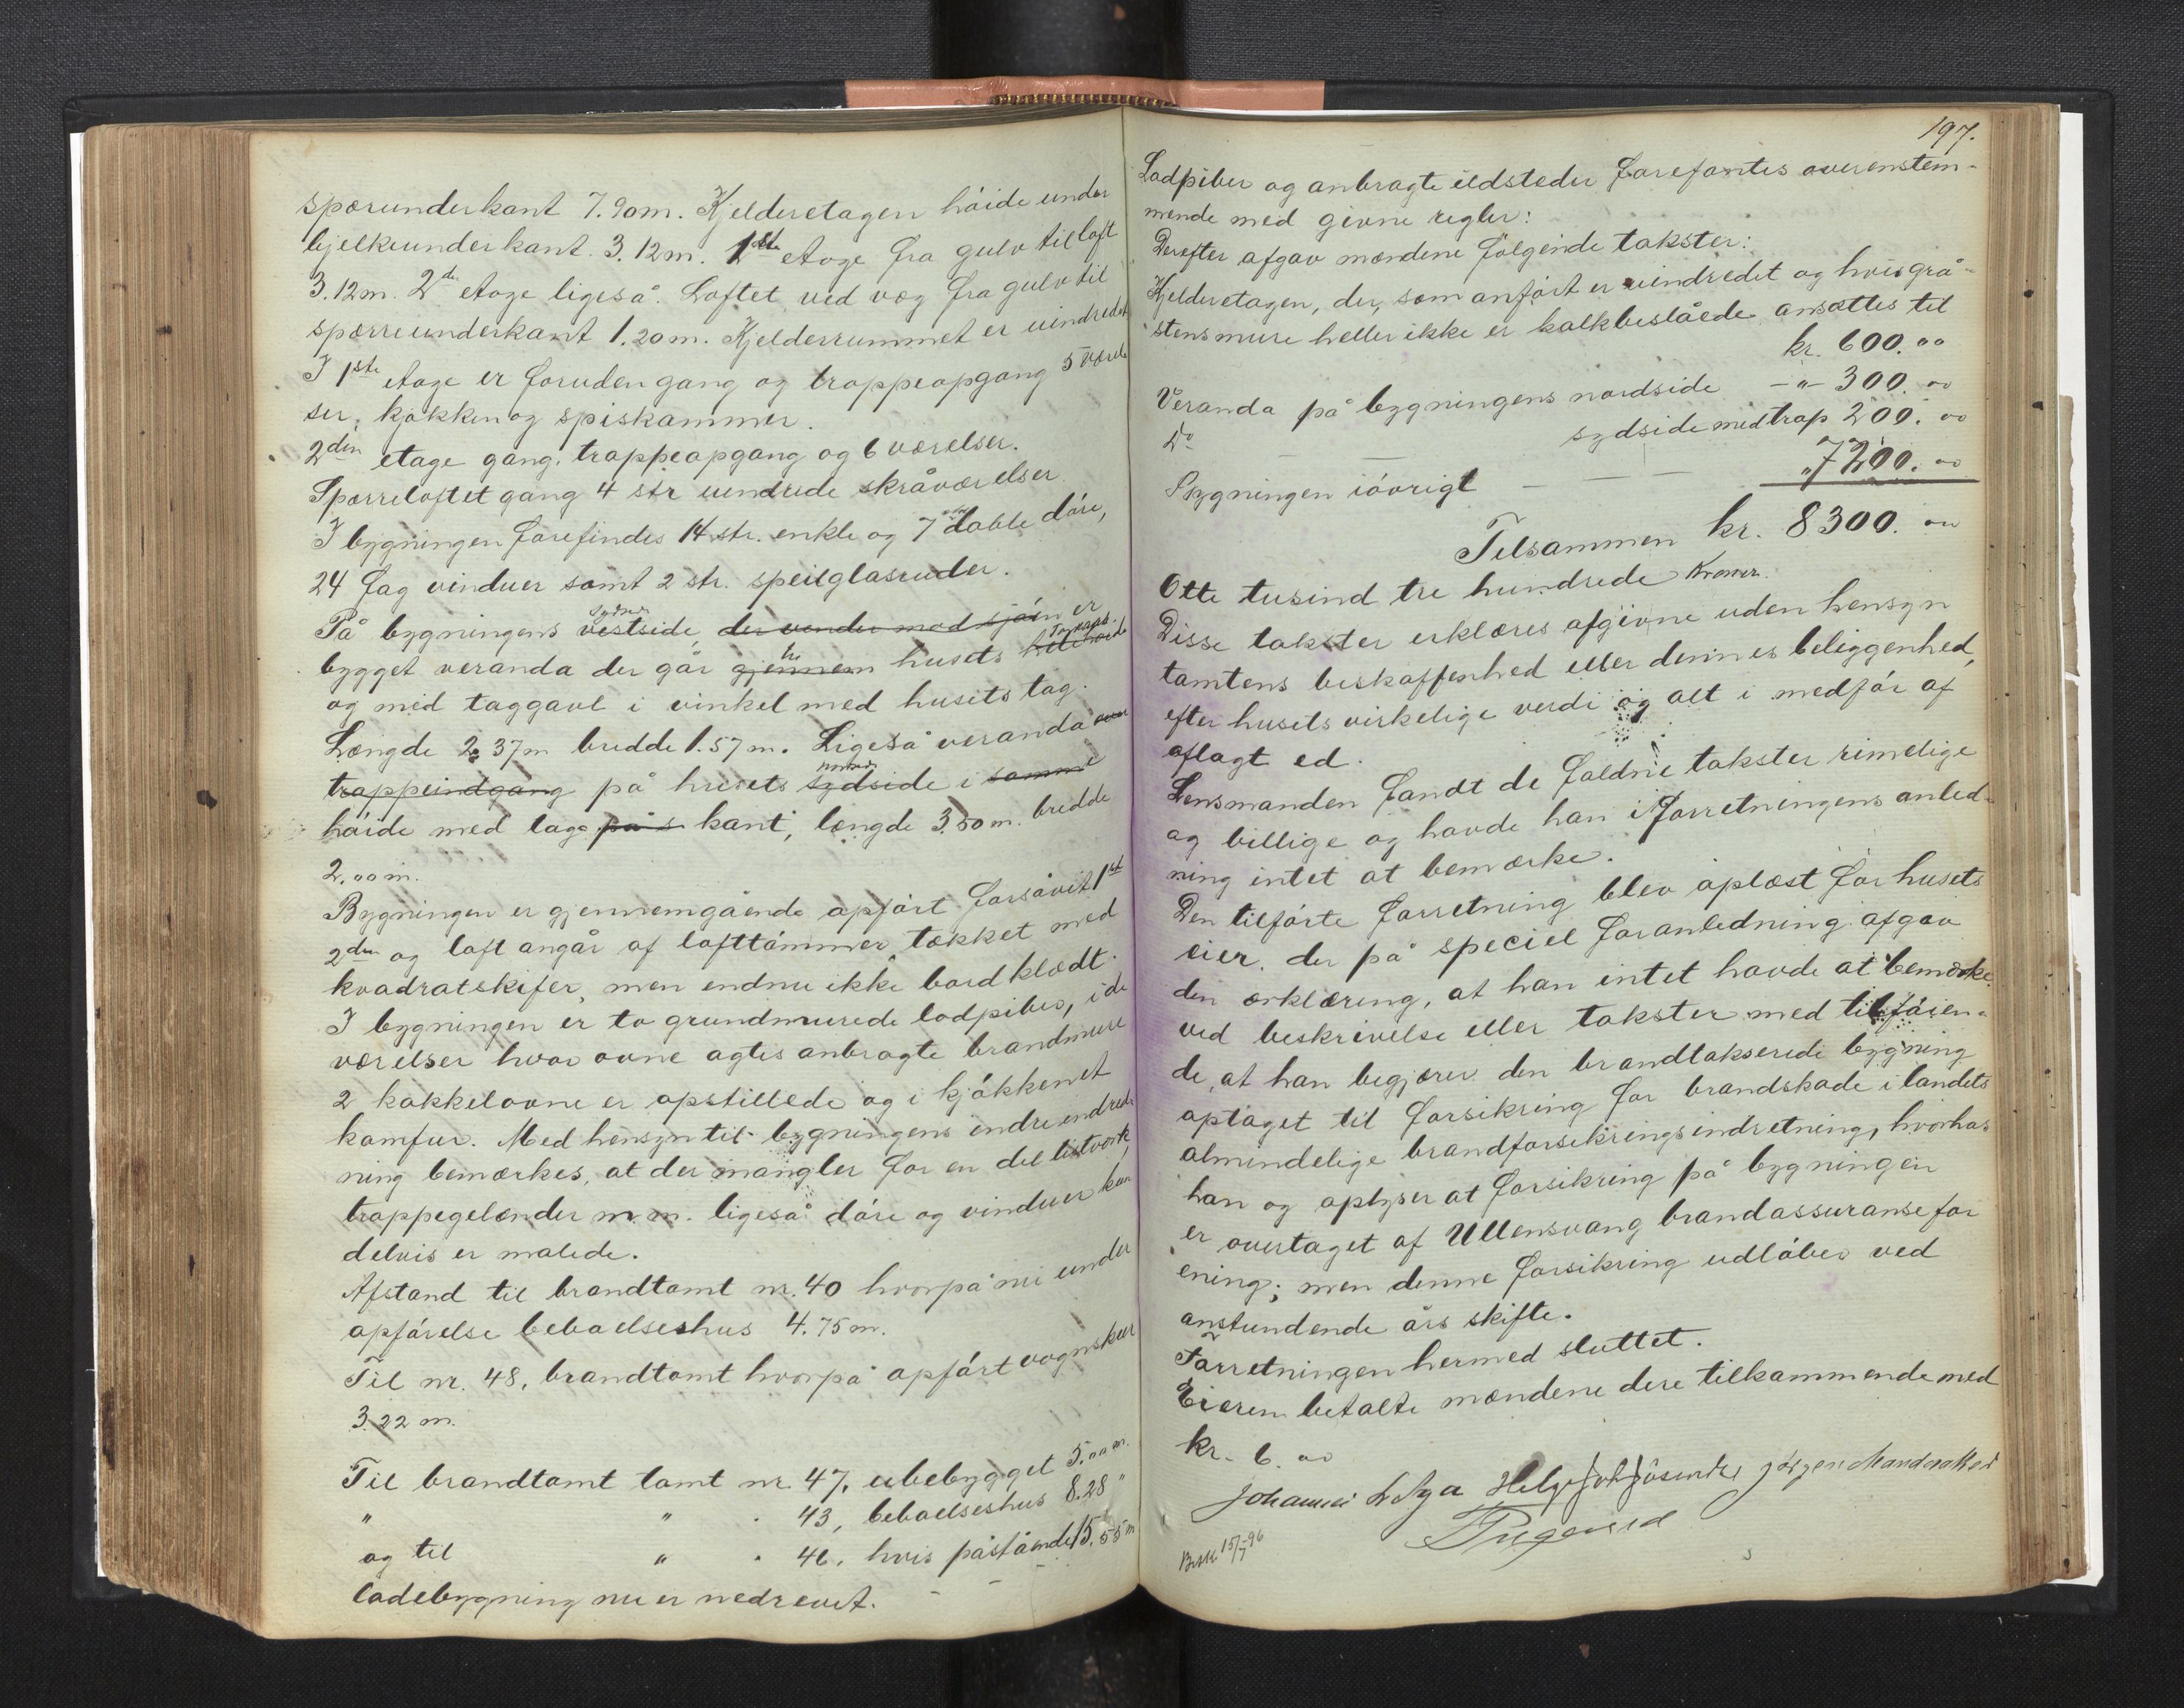 spærunderkant 7.90m. Kjelderetagen høide under
bjelkeunderkant. 3.12m. 1ste etage fra gulv til loft
3.12m. 2den etage ligeså. Loftet ved væg fra gulv til
spærreunderkant 1.20m. Kjelderrummet er uindredet
I 1ste etage er foruden gang og trappeopgang 5 værel
ser, kjøkken og spiskammer.
2den etage gang, trappeopgang og 6 værelser.
Sparreloftet gang 4 str uindrede skråværelser
I bygningen forefindes 14 str. enkle og 7 doble døre,
24 fag vinduer samt 2 str. speilglasruder.
På bygningens vestside, der vender mod sjøen er
bygget veranda der går gjennem husets
og med taggavl i vinkel med husets tag.
Længde 2.37m bredde 1.57m. Ligeså veranda over
trappeindgang på husets sydside i samme
høide med tage på s kant, længde 3.50m. bredde
2.00m.
Bygningen er gjennemgående opført forsåvidt 1ste
2den og loft angår af lofttømmer tækket med
kvadratskifer, men endnu ikke bordklædt.
I bygningen er to grundmurede lodpiber, i de
værelser hvor ovne agtes anbragte brandmure
2 kakkelovne er opstillede og i kjøkkenet
komfur. Med hensyn til bygningens indre indred
ning bemærkes, at der mangler for en del listverk,
trappegelænder m.m. ligeså døre og vinduer kun
delvis er malede.
Afstand til brandtomt nr. 40 hvorpå nu under
opførelse beboelseshus 4.75m.
Til nr. 48, brandtomt hvorpå opført vognskur
3.22 m.
Til brandtomt tomt nr. 47, ubebygget 5.00 m.
" " . 43, beboelseshus 8.28 "
og til " . 46, hvis påstående 15.55 m
ladebygning nu er nedrevet.
197.
Lodpiber og anbragte ildsteder forefantes overenstem-
mende med givne regler:
Derefter afgav mændene følgende takster:
Kjelderetagen, der, som anført er uindredet og hvis grå-
stensmure heller ikke er kalkbeslåede ansættes til
kr. 600.00
Veranda på bygningens nordside -"- 300.00
Do sydside med trap 200.00
Bygningen iøvrigt — — " 7200.00
Tilsammen kr. 8300.00
Otte tusind tre hundrede Kroner.
Disse takster erklæres afgivne uden hensyn
tomtens beskaffenhed eller dennes beliggenhed,
efter husets virkelige verdi og alt i medfør af
aflagt ed.
Lensmanden fandt de faldne takster rimelige
og billige og havde han i forretningens anled-
ning intet at bemærke.
Den tilførte forretning blev oplæst for husets
eier, der på speciel foranledning afgav
den erklæring, at han intet havde at bemærke
ved beskrivelse eller takster med tilføien-
de, at han begjærer den brandtakserede bygning
optaget til forsikring for brandskade i landets
almindelige brandforsikringsindretning, hvorhos
han og oplyser at forsikring på bygningen
er overtaget af Ullensvang brandassuranse for
ening; men denne forsikring udløber ved
anstundende års skifte.
Forretningen hermed sluttet.
Eieren betalte mændene dere tilkommende med
kr. 6.00
Johannes Helge Jørgen
15/7 96